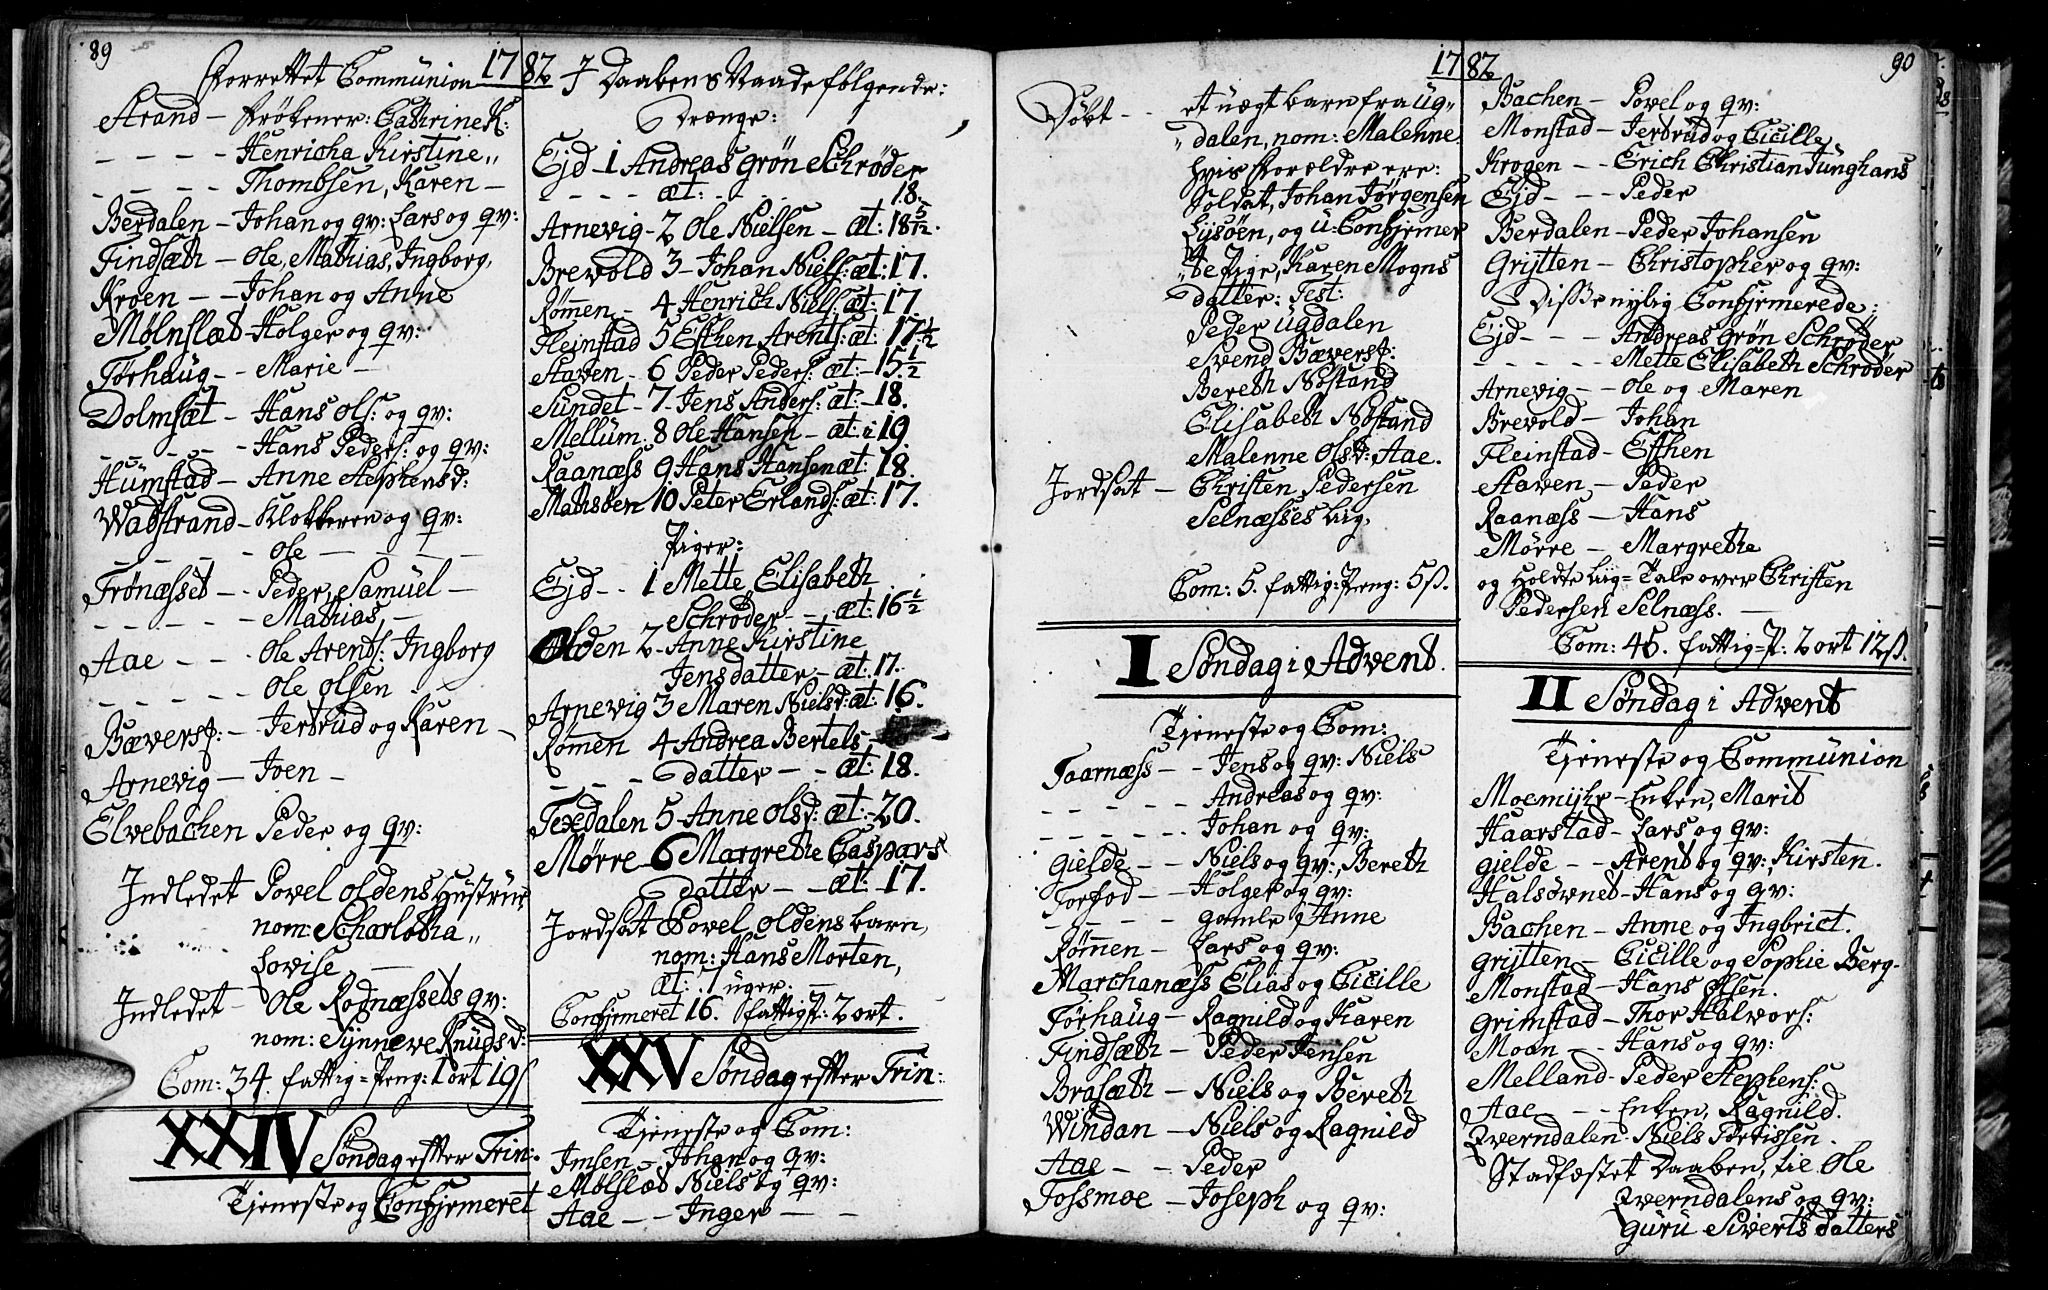 89
1782
Forrettet Communion
Strand – Frøkener: Cathrine K:
– – – – Henricha Kirstine,,
– – – – Thombsen, Karen –
Berdalen – Johan og qv: Lars og qv:
Findsæth – Ole, Mathias, Ingborg,
Kroen – – Johan og Anne
Mølnslæt – Holger og qv:
Tørhaug – – Marie –
Dolmsæt – Hans Ols: og qv:
– – – – Hans Peders: og qv:
Humstad – Anne Stephensd:
Wadstrand – Klokkeren og qv:
– – – – Ole – – – –
Trønæsset – – Peder, Samuel –
– – – – – Mathias, –
Aae – – – Ole Arents: Ingborg
– – – – – Ole Olsen –
Bæversf: – Jertrud og Karen –
Arnevig – Joen –
Elvebachen Peder og qv:
Indledet Povel Oldens Hustrue
nom: Scharlotha,,
Lovise –
Indledet – Ole Rodnæssets qv:
nom: Synneve Knudsd:
Com: 34. fattig=Peng: 1 ort 19ß
XXIV Søndag efter Trin:
Tjeneste og Confjrmeret
i Daabens Naade følgende:
Drænge:
Ejd – 1 Andreas Grøn Schrøder
– – – – æt: – – – 18.
Arnevig – 2 Ole Nielsen – æt: 18 5/12.
Brevold 3 – Johan Niels: æt: 17.
Rømmen – 4 Henrich Niels: æt: 17
Fleinstad 5 Esthen Arents: æt: 17 1/2
Staven – 6 Peder Peders: æt: – 15 1/2
Sundet – 7 – Jens Anders: æt: – 18.
Mellum: 8 Ole Hansen – æt: 19
Raanæss 9 Hans Hansen æt: 18.
Mathsøen 10 Peter Erlands: æt: 17.
Piger:
Ejd – – 1 Mette Elisabeth
Schrøder – – æt: 16 1/2
Olden 2 – Anne Kirstine
Jensdatter – æt: 17.
Arnevig 3 Maren Nielsd: æt: 16.
Rømen 4 Andrea Bertels –
– – – Datter – – æt: 18.
Texdalen 5 – Anne Olsd: æt: – 20.
Mørre 6 Margrethe Caspars
Datter – – æt: – 17.
Jordsat Povel Oldens barn,
nom: Hans Morten,
æt: 7 uger: –
Confjrmeret 16. fattigP: 2 ort.
XXV Søndag efter Trin:
Tjeneste og Com:
Imsen – Johan og qv:
Mølslæt Niels og qv:
Aae – – Inger – –
1782
90
Døbt – – et uægt barn fra Ug„
„dalen, nom: Malenne
hvis Forældre ere:
Soldat, Johan Jørgensen
Lysøen, og u: Confjrmer
„te Pige, Karen Mogns
Datter: Test:
Peder Ugdalen
Svend Bæversf:
Bereth Nøstand
Elisabeth Nøstand
Malenne Olsd: Aae.
Jordsat – Christen Pedersen
Selnæsses Lig,
Com: 5. fattig=Peng: 5ß.
I Søndag i Advent.
Tjeneste og Com:
Taarnæss – – Jens og qv: Niels
– – – – Andreas og qv:
– – – – Johan og qv:
Gielde – – Niels og qv:, Bereth
Forfod – – Holger og qv:
– – – – gamle Anne
Rømmen – Lars og qv:
Marchanæss Elias og Cicille
Tørhaug – Ragnild og Karen
Findsæth – Peder Jensen
Brasæth – Niels og Bereth
Windan – Niels og Ragnild
Aae – – Peder
Fossmoe – Joseph og qv:
Bachen – Povel og qv:
Monstad – Jertrud og Cicille
Krogen – – Erich Christian Junghans
Ejd – – – Peder
Berdalen – Peder Johansen
Grjtten – Christopher og qv:
Disse nylig Confjrmerede:
Ejd – – – Andreas Grøn Schrøder
– – – – – Mette Elisabeth Schrøder
Arnevig – – Ole og Maren
Brevold – Johan
Fleinstad – Esthen
Staven – Peder
Raanæss – Hans
Mørre – Margrethe
og Holdte Liig=Tale over Christen
Pedersen Selnæss. –
Com: 45. fattig=P: 2 ort 12ß.
II Søndag i Advent
Tjeneste og Communion
Moemyhr – Enken, Marit
Haarstad – Lars og qv:
Gielde – – Arent og qv:, Kirsten.
Halsøvnet – Hans og qv:
Bachen – Anne og Ingbrict.
Grjtten – Cicille og Sophie Berg-
Monstad – Hans Olsen.
Grimstad – Thor Halvors:
Moan – – Hans og qv:
Melland – Peder Stephens:
Aae – – Enken, Ragnild.
Qverndalen – Niels
Stadfæstet Daaben, til Ole
Qverndalens og qv:
Guru Siverts Datters